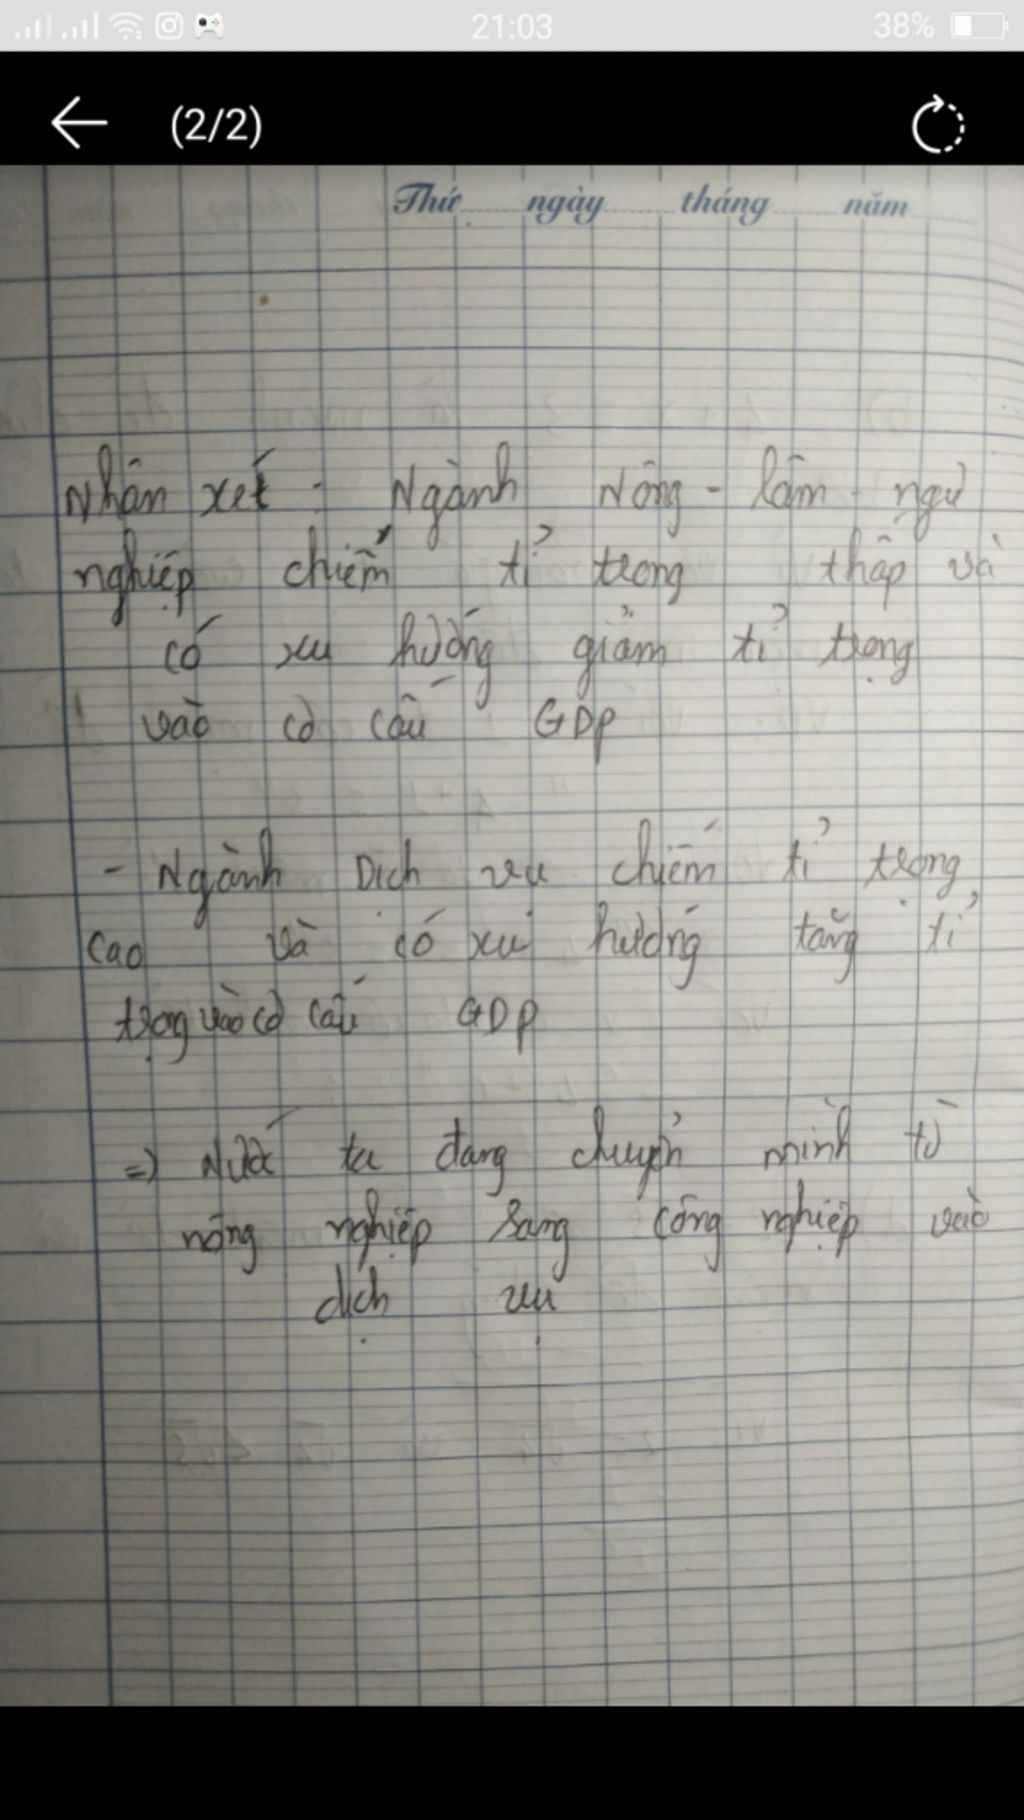 21:03
38%
(2/2)
Thứ ngày tháng năm
Nhân xét : Ngành Nông - lâm - ngư
nghiệp chiếm tỉ trong thấp và
có xu hướng giảm tỉ trọng
vào cơ cấu GDP
- Ngành Dịch vu chiếm tỉ trọng
cao và có xu hướng tăng tỉ
trọng vào cơ cấu GDP
=) Nước ta đang chuyển mình từ
nông nghiệp sang công nghiệp vào
dịch vụ